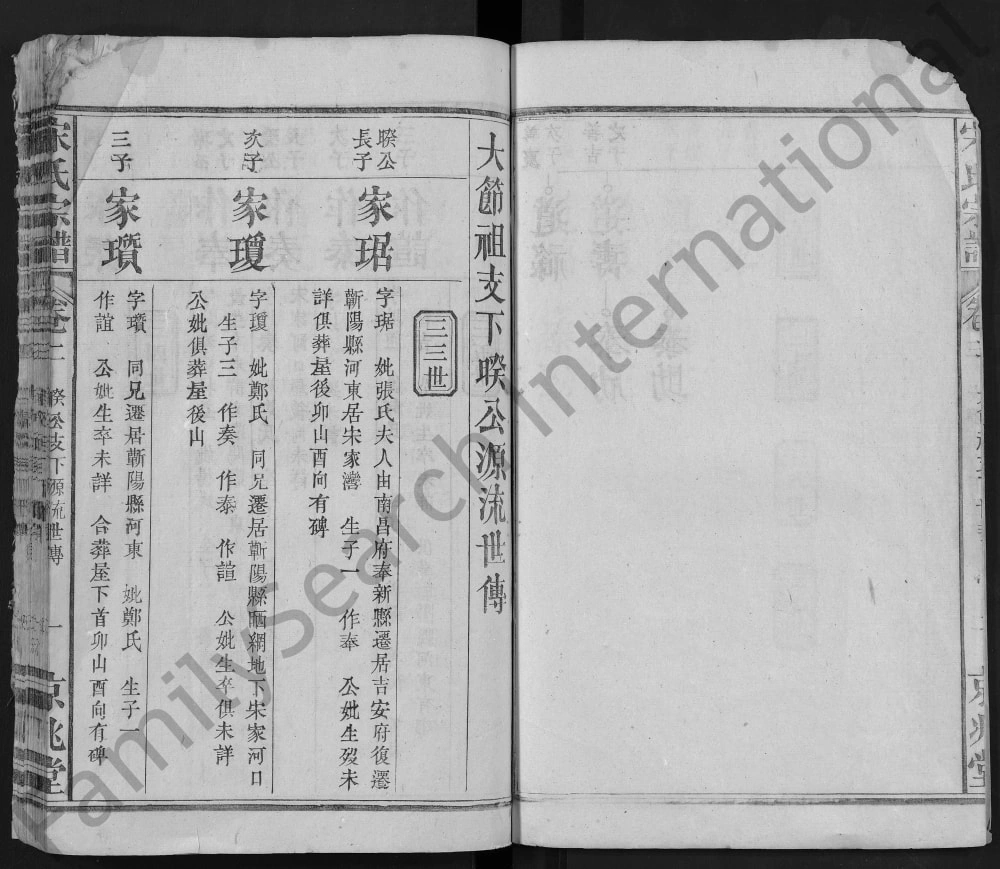 大節祖支下暌公源流世傳
三三世
暌公
長子
家琚
字琚 妣張氏夫人由南昌府奉新縣遷居吉安府復遷
蘄陽縣河東居宋家灣 生子一 作奉 公妣生歿未
詳俱葬屋後卯山酉向有碑
次子
家瓊
字瓊 妣鄭氏 同兄遷居蘄陽縣晒網地下宋家河口
生子三 作奏 作泰 作諠 公妣生卒俱未詳
公妣俱葬屋後山
三子
家瓚
字瓚 同兄遷居蘄陽縣河東 妣鄭氏 生子一
作誼 公妣生卒未詳 合葬屋下首卯山酉向有碑
宋氏宗譜 卷二 暌公支下源流世傳 一 京兆堂
宋氏宗譜 卷 京兆堂
FamilySearch International